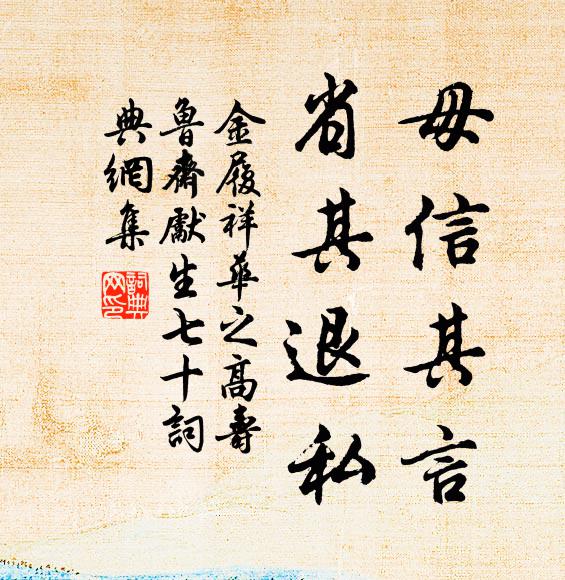 毋信其言
省其退私
金履祥華之高壽
魯齋獻生七十詞
典網集
詞典網印